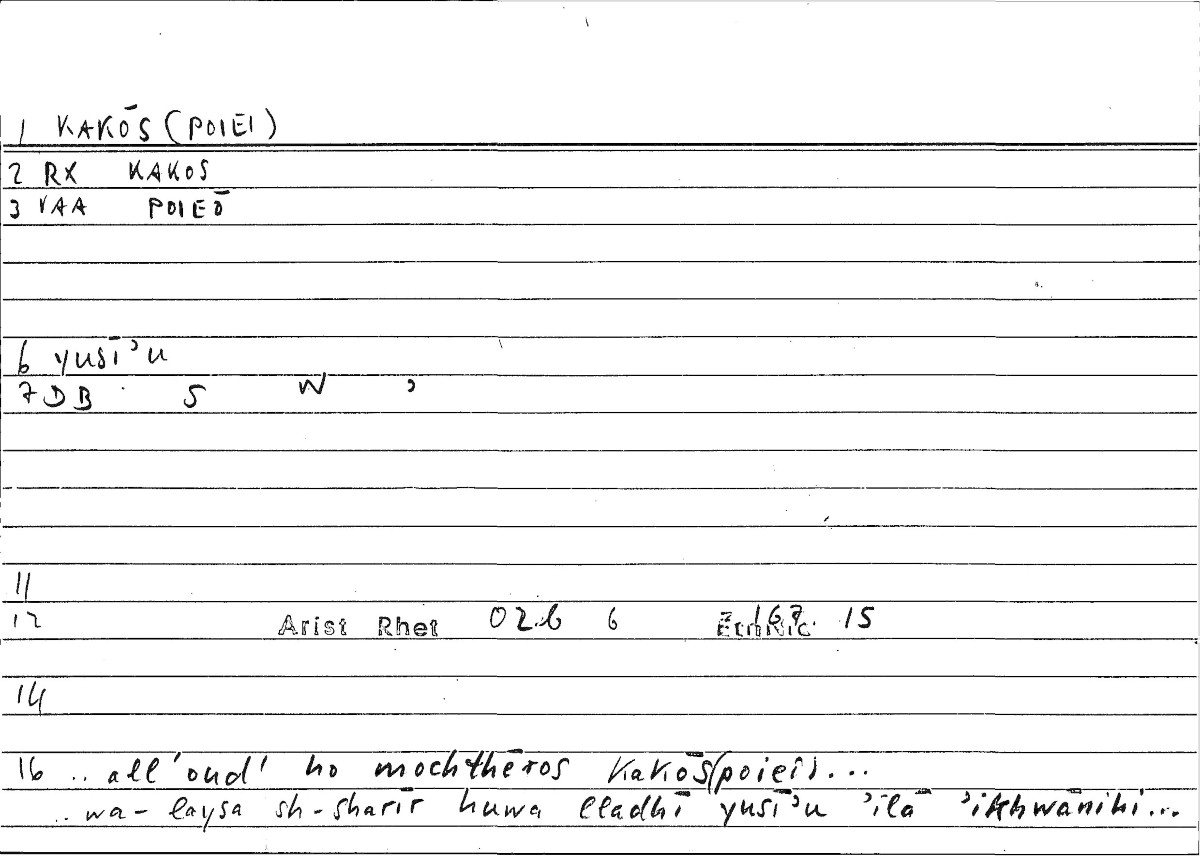 1 KAKŌS (POIEI)
2 RX KAKOS
3 VAA POIEŌ
6 yusī’u
7 DB S W ’
11
12 Arist Rhet 02b 6 167. 15
14
16 .. all 'oud' ho mochthēros kakōs (poiei)...
.. wa-laysa sh-sharīr huwa lladhī yusī’u ’ilā ’ikhwānihi...